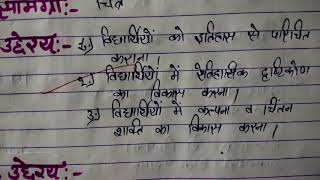 सामग्री:- चित्र
उद्देश्य:- 1.) विद्यार्थियों को इतिहास से परिचित
कराना।
2.) विद्यार्थियों में ऐतिहासिक दृष्टिकोण
का विकास करना।
3.) विद्यार्थियों में कल्पना व चिंतन
शक्ति का विकास करना।
उद्देश्य:-